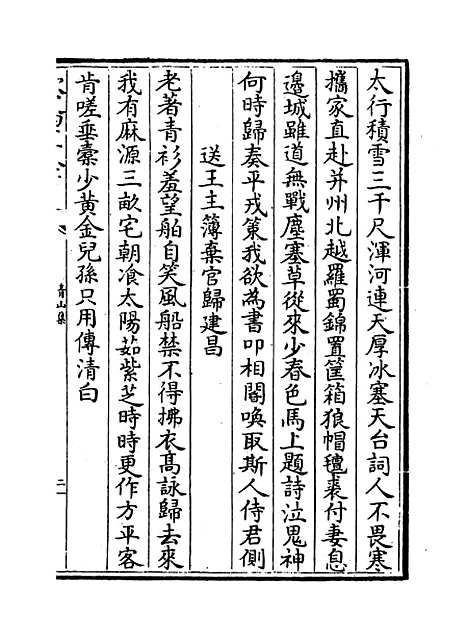 太行積雪三千尺渾河連天厚冰塞天台詞人不畏寒
攜家直赴并州北越羅蜀錦置筐箱狼帽氊裘付妻息
邊城雖道無戰塵塞草從來少春色馬上題詩泣鬼神
何時歸奏平戎策我欲為書叩相閣喚取斯人侍君側
送王主簿棄官歸建昌
老著青衫羞望舶自笑風船禁不得拂衣髙詠歸去來
我有麻源三畝宅朝飡太陽茹紫芝時時更作方平客
肯嗟垂橐少黄金兒孫只用傳清白
青山集
二